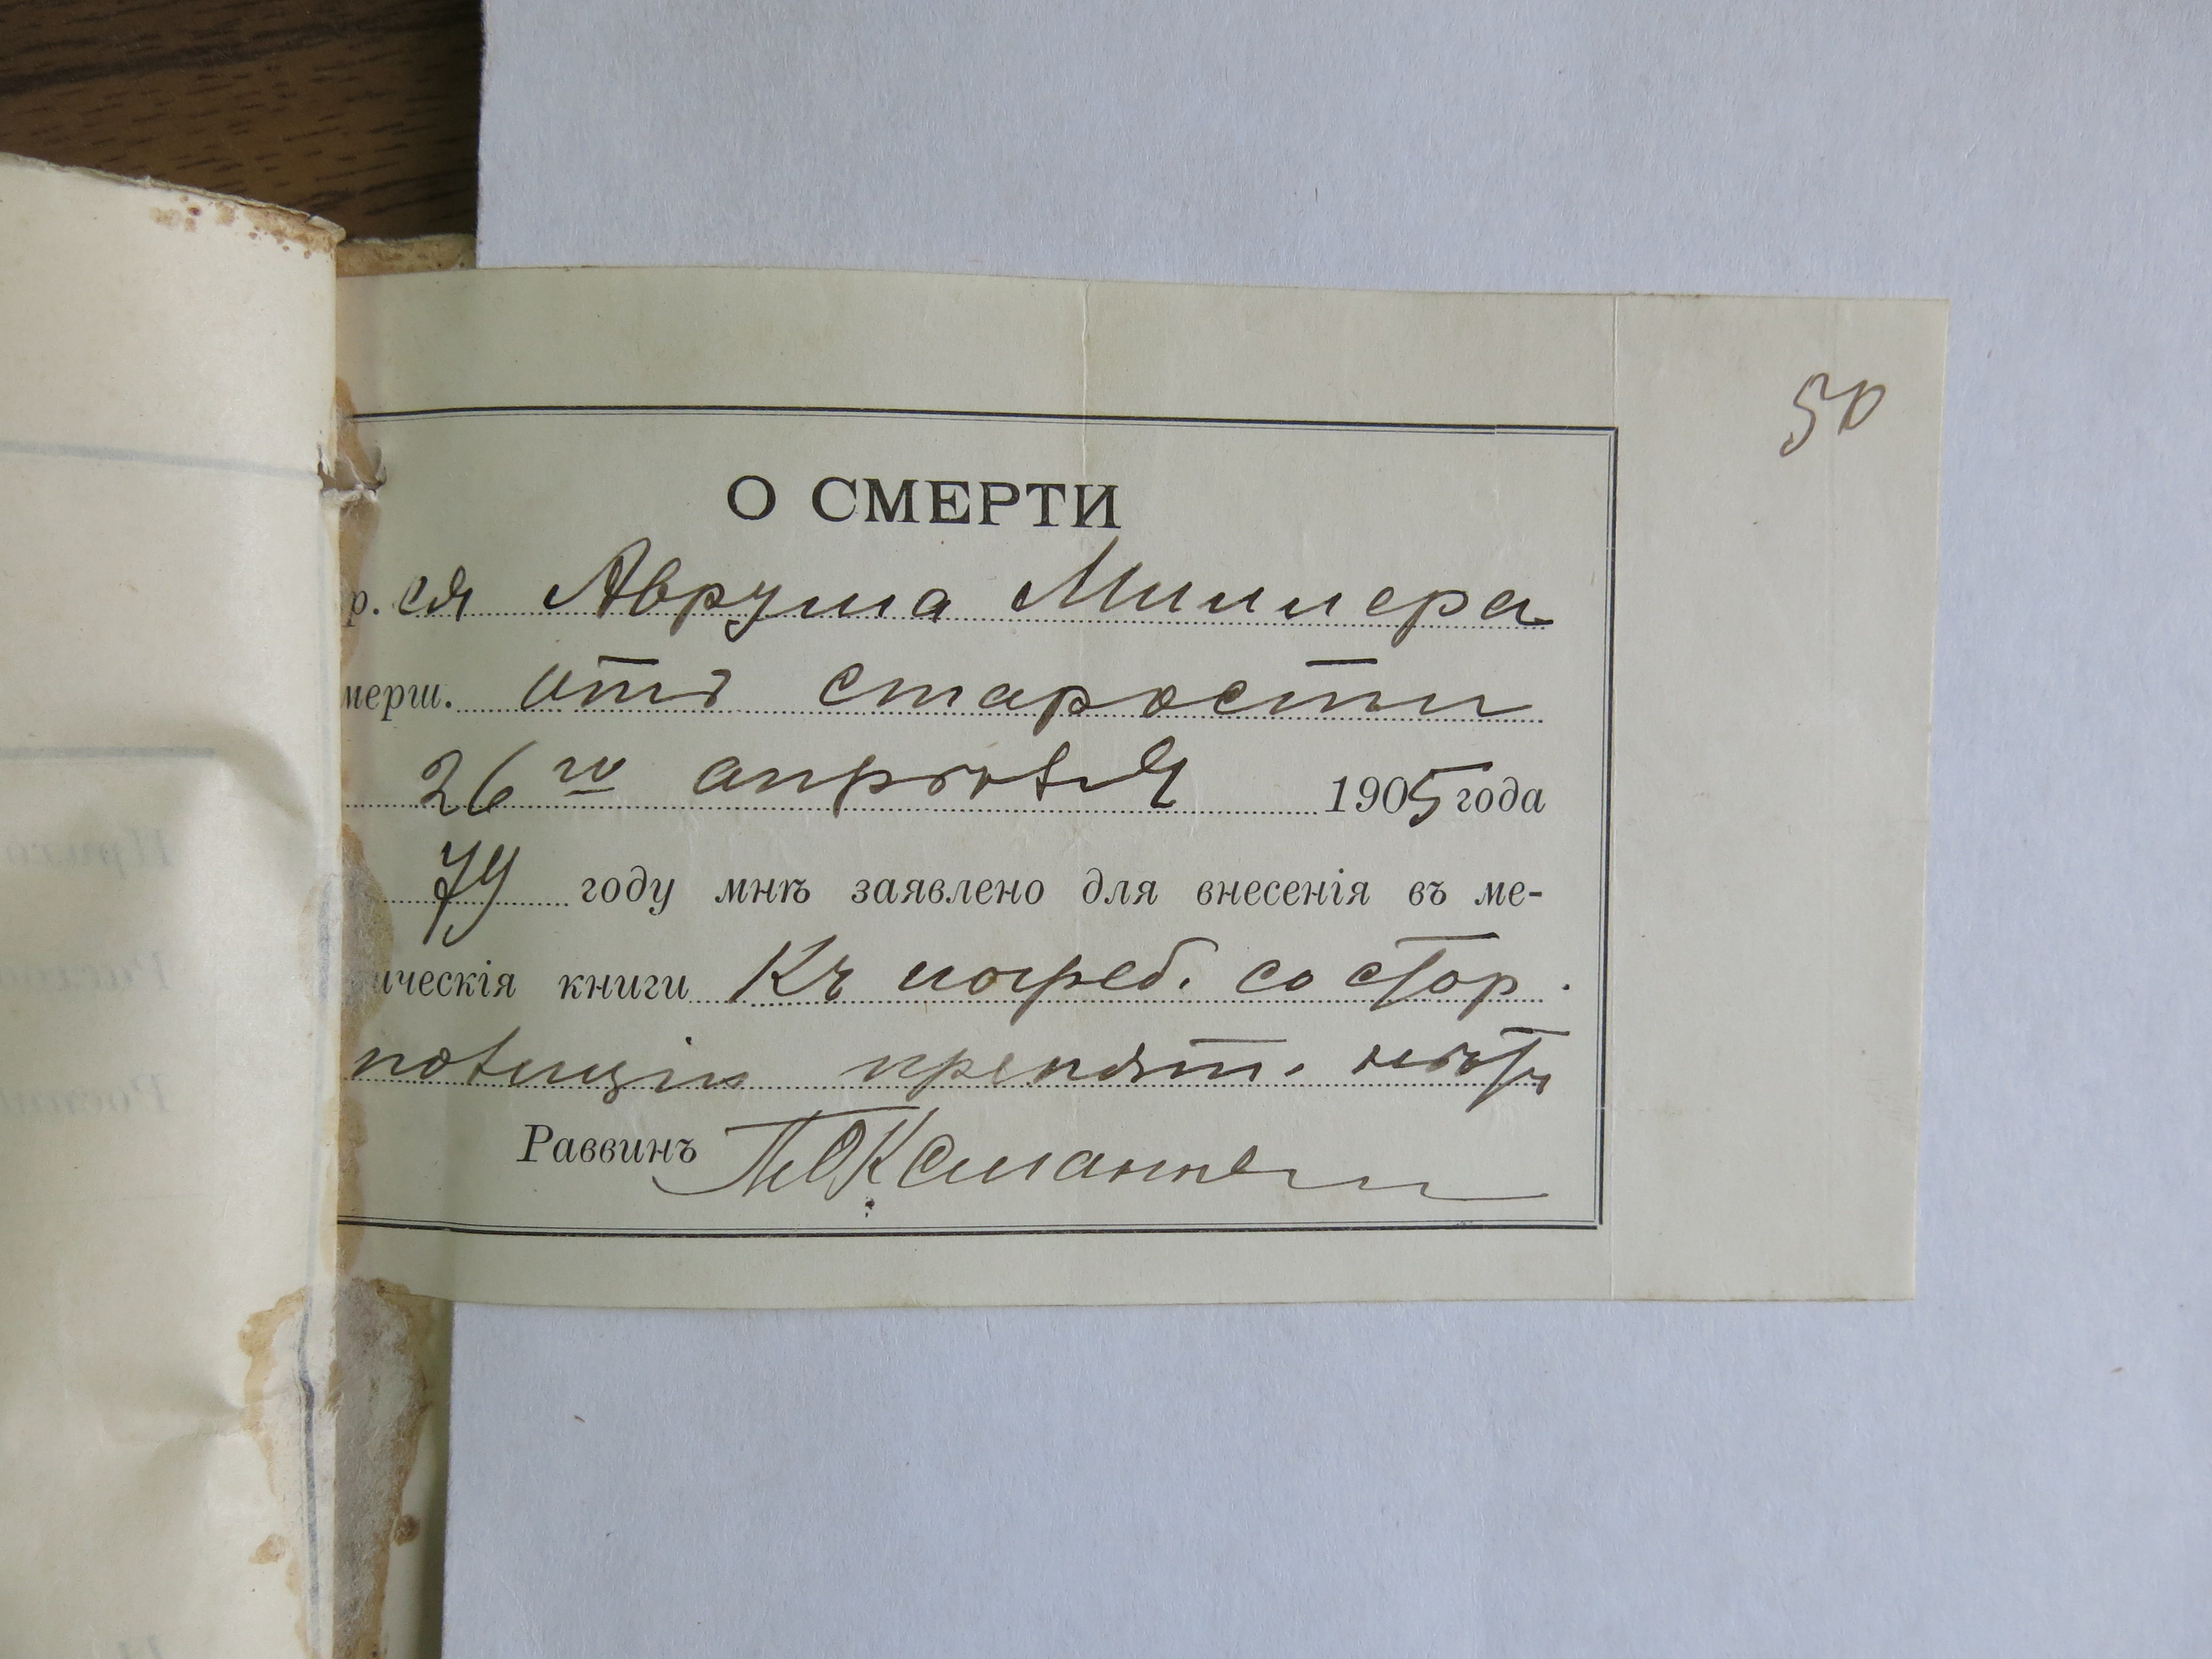 50
О СМЕРТИ
р. ся Аврума Миллера
мерш. отъ старости
26го апрѣля 1905 года
79 году мнѣ заявлено для внесенія въ ме-
ическія книги Къ погреб. со стор.
полиціи препятст. нѣтъ
Раввинъ